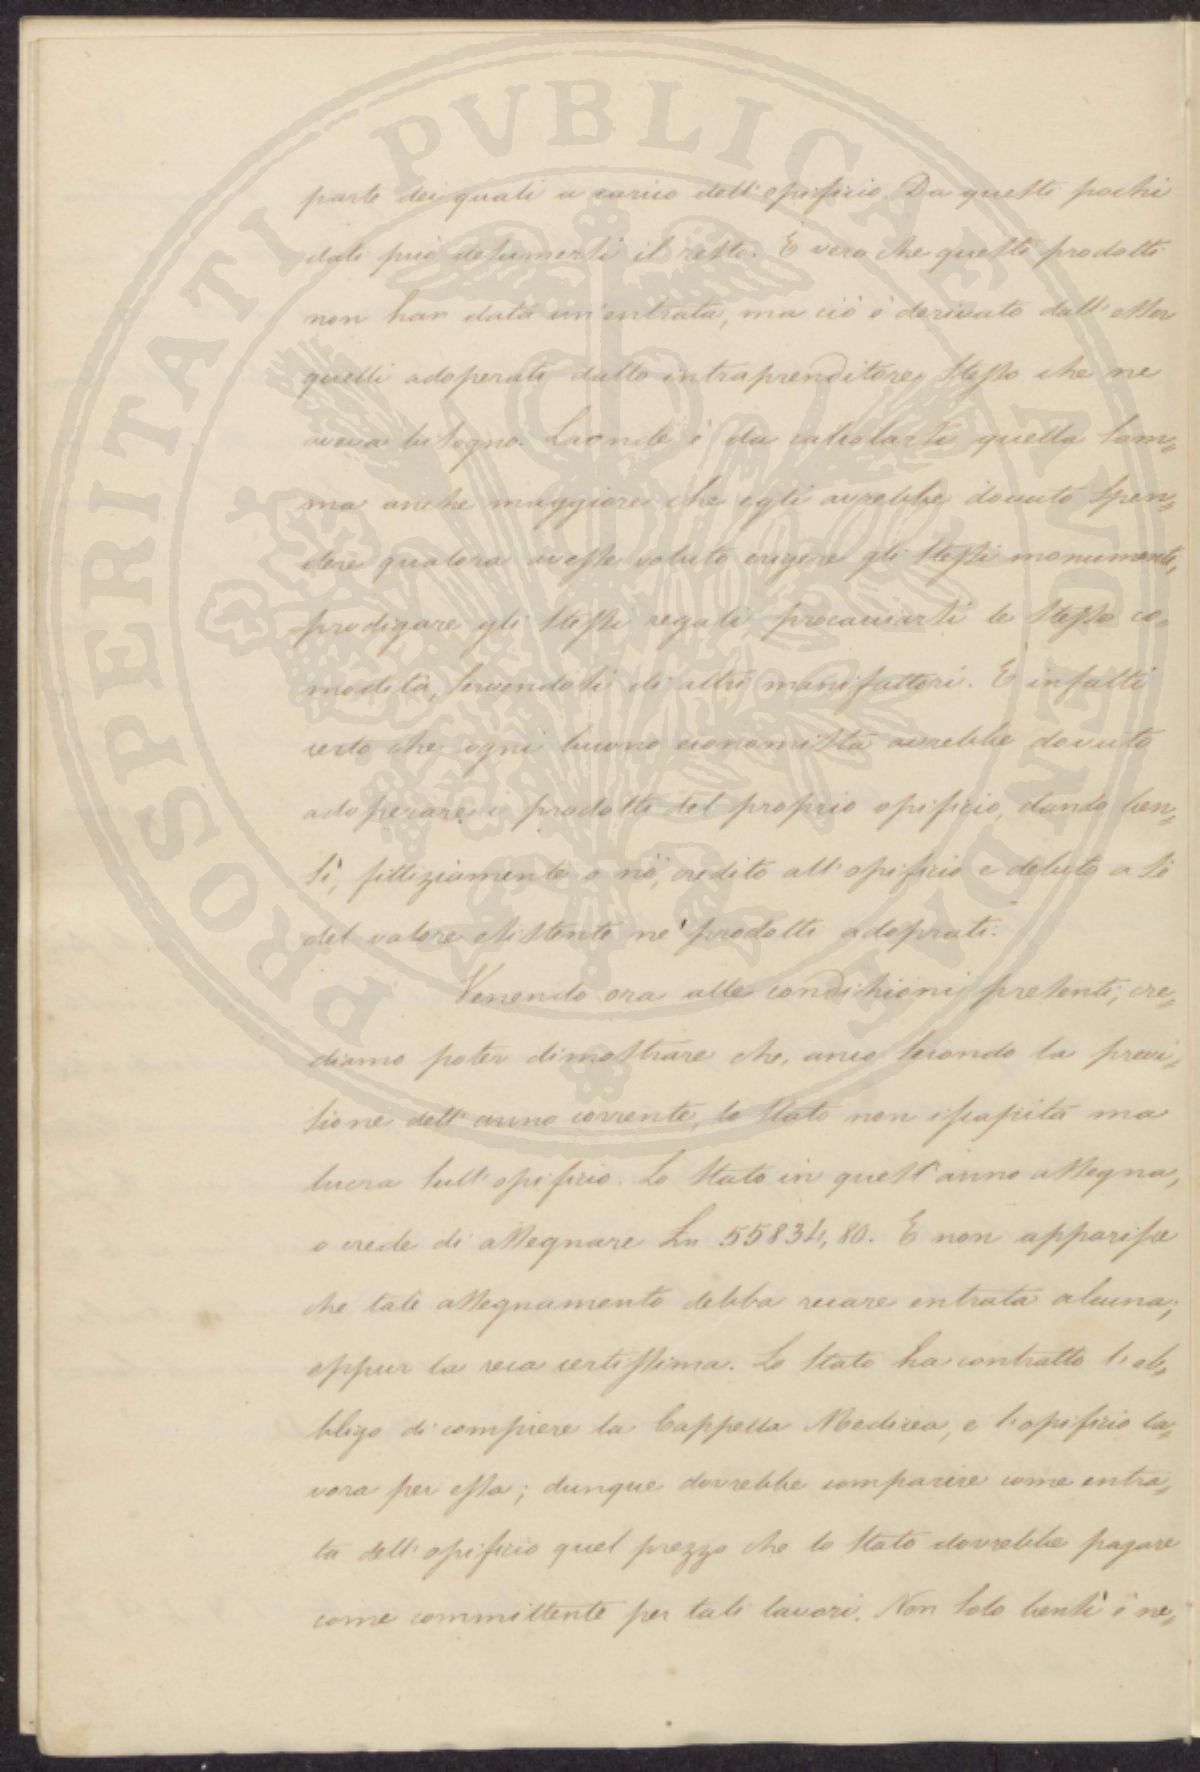 parte dei quali a carico dell'opificio. Da questi pochi
dati può desumersi il resto. È vero che questi prodotti
non han data un'entrata, ma ciò è derivato dall'esser
quelli adoperati dallo intraprenditore stesso che ne
aveva bisogno. Laonde è da calcolarsi quella som=
ma anche maggiore che egli avrebbe dovuto spen=
dere qualora avesse voluto erigere gli stessi monumenti,
prodigare gli stessi regali, procacciarsi le stesse co=
modità, servendosi di altri manifattori. È infatti
certo che ogni buono economista avrebbe dovuto
adoperare i prodotti del proprio opificio, dando ben=
sì, fittiziamente o nò, credito all'opificio e debito a sè
del valore esistente ne' prodotti adoprati.
Venendo ora alle condizioni presenti, cre=
diamo poter dimostrare che, anco secondo la previ=
sione dell'anno corrente, lo Stato non iscapita ma
lucra sull'opificio. Lo Stato in quest'anno assegna,
o crede di assegnare Ln 55834,80. E non apparisce
che tale assegnamento debba recare entrata alcuna;
eppur la reca certissima. Lo Stato ha contratto l'ob=
bligo di compiere la Cappella Medicea, e l'opificio la=
vora per essa; dunque dovrebbe comparire come entra=
ta dell'opificio quel prezzo che lo Stato dovrebbe pagare
come committente per tali lavori. Non solo bensì è ne=
PROSPERITATI PVBLICAE AVGENDAE